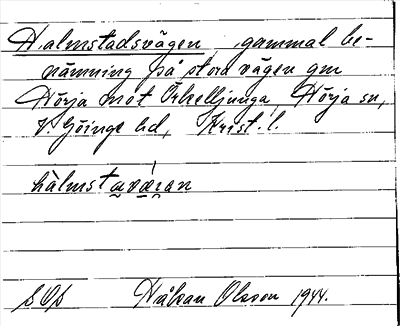 Halmstadsvägen, gammal be-
nämning på stora vägen gm
Hörja mot Örkelljunga, Hörja sn,
V. Göinge hd, Krist. l.
hàlmstavä́ran
Håkan Olsson 1944.